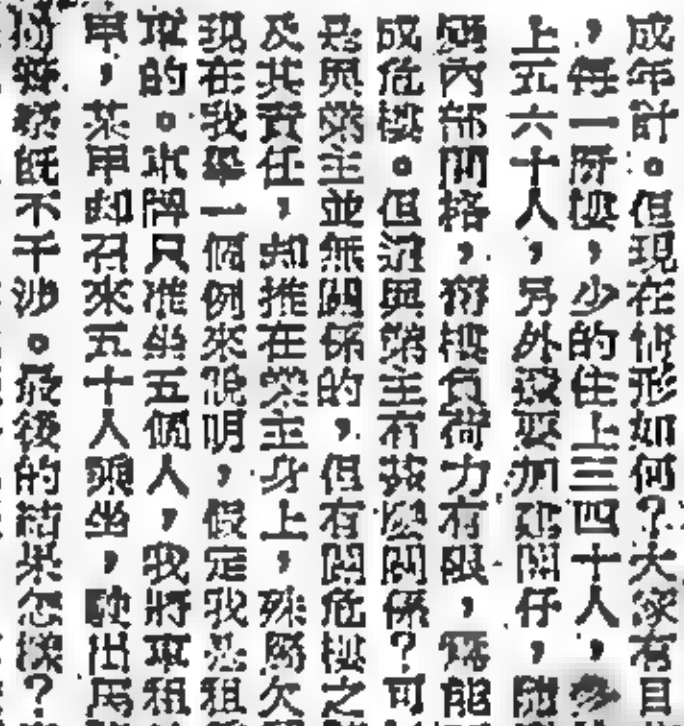 成年計。但現在情形如何?大家有目
,每一所樓,少的住上三四十人,多
上五六十人,另外還要加建閣仔,隨
便內部間格,舊樓負荷力有限,焉能
成危樓。但這與業主有甚麼關係?可
是與業主並無關係的,但有關危樓之
及其責任,却推在業主身上,殊屬欠
現在我舉一個例來說明,假定我是租
車的。車牌只准坐五個人,我將車租
甲,某甲却召來五十人乘坐,駛出馬
警察既不干涉。最後的結果怎樣?